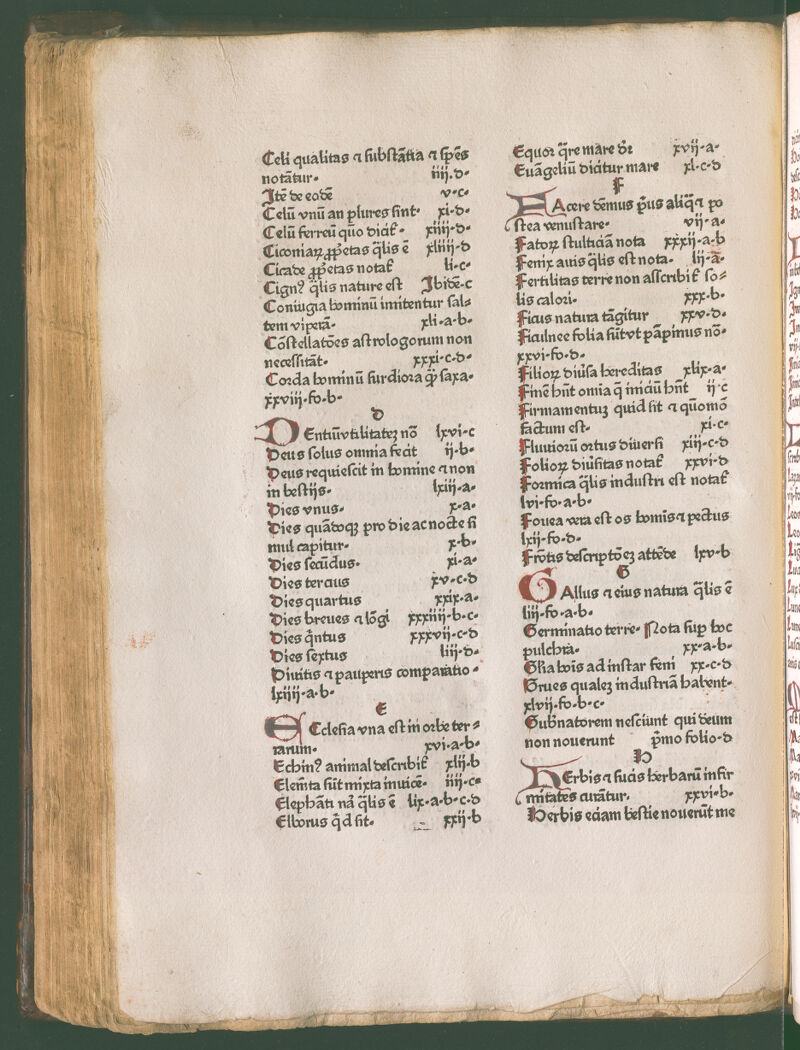 Celi qualitas ⁊ substãtia ⁊ sp̃es
notãtur· iiij.d·
Itẽ de eodẽ v·c·
Celũ vnũ an plures sint· xi·d·
Celũ ferreũ quo dicit᷑· xiiij·d·
Ciconiaꝝ ꝓp̃etas q̃lis ẽ xliiij·d
Cicade ꝓp̃etas notat᷑ li·c·
Cignꝰ q̃lis nature est Ibidẽ·c
Coniugia hominũ imitentur sal⸗
tem viperã· xli·a·b·
Cõstellatões astrologorum non
necessitãt· xxxi·c·d·
Corda hominũ surdiora q̃ꝫ saxa·
xxviij·fo·b·
D
DEntiũvtilitateꝫ nõ lxvi·c
Deus solus omnia fecit ij·b·
Deus requiescit in homine ⁊ non
in bestijs· lxiij·a·
Dies vnus· x·a·
Dies quãdoqꝫ pro die ac nocte si
mul capitur· x·b·
Dies secũdus· xi·a·
Dies tercius xv·c·d
Dies quartus xxix·a·
Dies breues ⁊ lõgi xxxiiij·b·c·
Dies q̃ntus xxxvij·c·d
Dies sextus liij·d·
Diuitis ⁊ pauperis comparatio·
lxiiij·a·b·
E
ECclesia vna est in orbe ter⸗
rarum· xvi·a·b·
Echinꝰ animal describit᷑ xlij·b
Elem̃ta sũt mixta inuicẽ· iiij·c·
Elephãti nã q̃lis ẽ lix·a·b·c·d
Elborus q̃d sit· xxij·b
Equoꝛ q̃re mare d̃r xvij·a·
Euãgeliũ dicitur mare xl·c·d
F
FAcere dẽmus p̃us aliq̃ ⁊ po
stea venustare· vij·a·
Fatoꝝ stulticiã nota xxxij·a·b
Fenix auis q̃lis est nota· lij·a·
Fertilitas terre non ascribit᷑ so⸗
lis calori· xxx·b·
Ficus natura tãgitur xxv·d·
Ficulnee folia sũt vt pãpimus nõ·
xxvi·fo·d·
Filioꝝ diũsa hereditas xlix·a·
Finẽ hñt omia q̃ iniciũ hñt ij·c
Firmamentuꝫ quid sit ⁊ quõmõ
factum est· xi·c·
Fluuiorũ ortus diuersi xiij·c·d
Folioꝝ diũsitas notat᷑ xxvi·d
Formica q̃lis industri est notat᷑
lvi·fo·a·b·
Fouea vera est os homis ⁊ pectus
lxij·fo·d·
Frõtis descriptõeꝫ attẽde lxv·b
G
GAllus ⁊ eius natura q̃lis ẽ
liij·fo·a·b·
Germinatio terre· Nota suꝑ hoc
pulchra· xx·a·b·
Gl̃ia hoĩs ad instar feni xx·c·d
Grues qualeꝫ industriã habent·
xlvij·fo·b·c·
Gub̃natorem nesciunt qui deum
non nouerunt p̃mo folio·d
H
HErbis ⁊ sucis herbarũ infir
mitates curãtur· xxvi·b·
Herbis eciam bestie nouerũt me